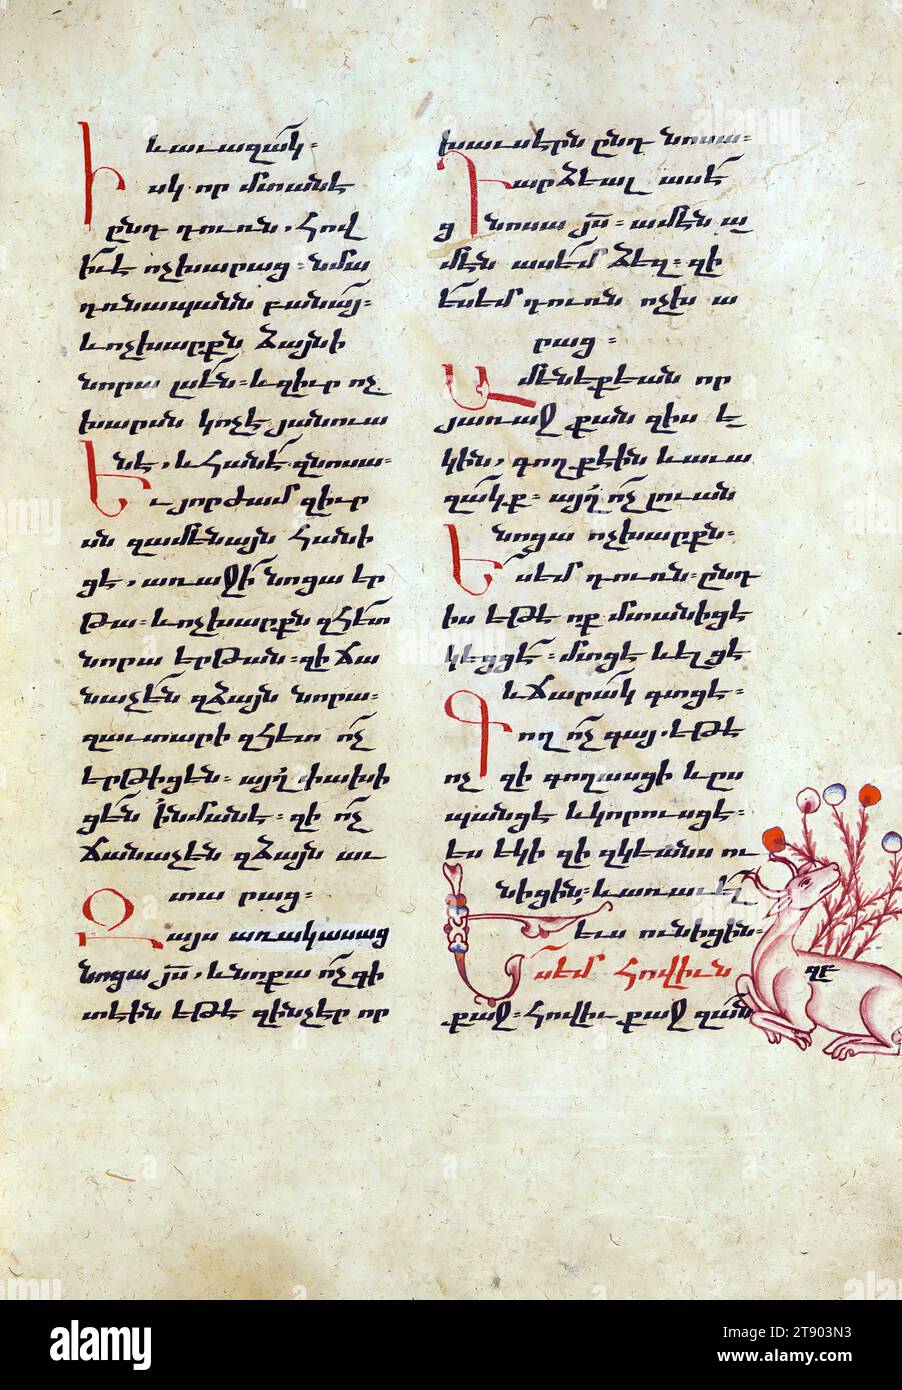 և աւազակ։
Իսկ որ մտանէ
ընդ դուռն, հով
իւ է ոչխարաց։ նմա
դռնապանն բանայ։
և ոչխարքն ձայնի
նորա լսեն։ և զիւր ոչ
խարսն կոչէ յանուա
նէ, և հանէ զնոսա։
Եւ յորժամ զիւր
սն զամենայն հանի
ցէ, առաջի նոցա եր
թա։ և ոչխարքն զհետ
նորա երթան։ զի ճա
նաչեն զձայն նորա։
զաւտարի զհետ ոչ
երթիցեն։ այղ փախի
ցեն ի նմանէ։ զի ոչ
ճանաչեն զձայն աւ
տարաց։
Զայս առակ ասաց
նոցա յս, և նոքա ոչ գի
տէին եթէ զինչ էր որ
խաւսէրն ընդ նոսա։
Դարձեալ ասէ
ց նոսա յս։ ամէն ա
մէն ասեմ ձեզ։ զի
ես եմ դուռն ոչխա
րաց։
Ամենեքեան որ
յառաջ քան զիս է
կին, գողք էին և աւա
զակք։ այղ ոչ լուան
նոցա ոչխարքն։
Ես եմ դուռն։ ընդ
իս եթէ ոք մտանիցէ
կեցցէ։ մտցէ և ելցէ
և ճարակ գտցէ։
Գող ոչ գայ, եթէ
ոչ զի գողասցի և ըս
պանցէ և կորուսցէ։
ես եկի զի զկեանս ու
նիցին։ և առաւել
ևս ունիցին։
Ես եմ հովիւն
քաջ։ հովիւ քաջ զան
զէ
alamy
Image ID: 2T903N3
www.alamy.com